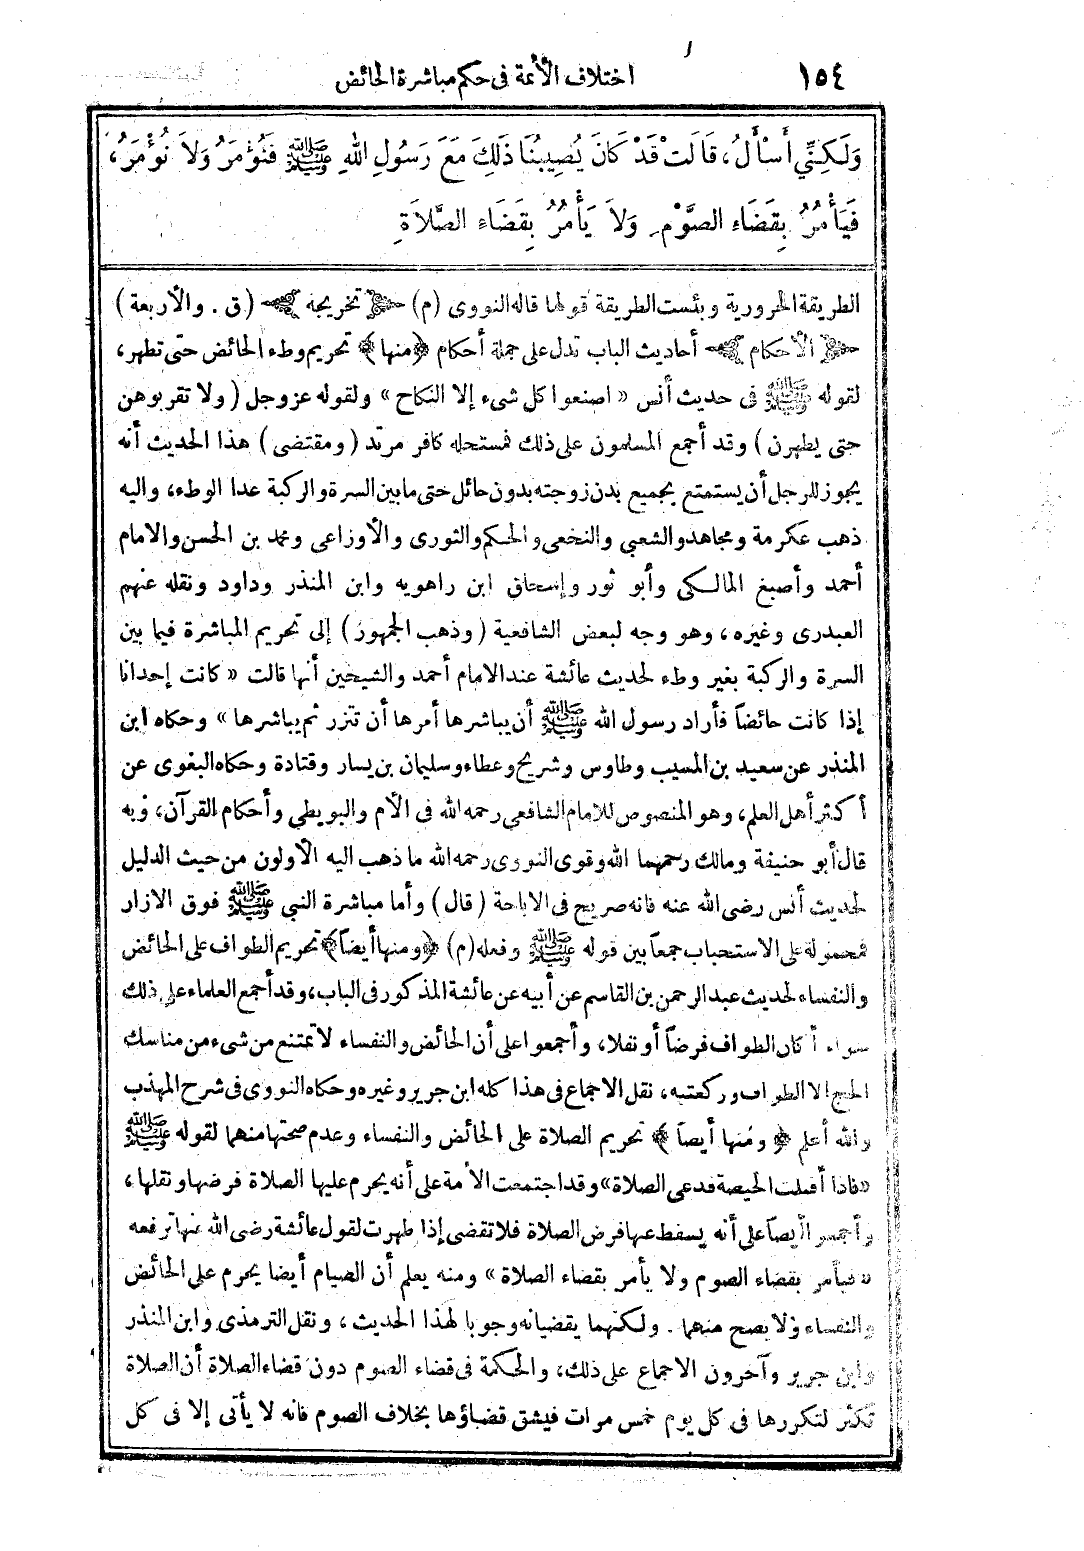 ١٥٤
اختلاف الأئمة فى حكم مباشرة الحائض
وَلَكِنِّي أَسْأَلُ، قَالَتْ قَدْ كَانَ يُصِيبُنَا ذَلِكَ مَعَ رَسُولِ اللهِ ﷺ فَنُؤْمَرُ وَلاَ نُؤْمَرُ،
فَيَأْمُرُ بِقَضَاءِ الصَّوْمِ وَلاَ يَأْمُرُ بِقَضَاءِ الصَّلاَةِ
الطريقة الحرورية وبئست الطريقة قولها قاله النووى (م) ﴿ تخريجه ﴾ (ق . والأربعة)
﴿ الأحكام ﴾ أحاديث الباب تدل على جملة أحكام ﴿منها﴾ تحريم وطء الحائض حتى تطهر،
لقوله ﷺ فى حديث أنس « اصنعوا كل شىء إلا النكاح » ولقوله عز وجل (ولا تقربوهن
حتى يطهرن) وقد أجمع المسلمون على ذلك فمستحله كافر مرتد (ومقتضى) هذا الحديث أنه
يجوز للرجل أن يستمتع بجميع بدن زوجته بدون حائل حتى ما بين السرة والركبة عدا الوطء، واليه
ذهب عكرمة ومجاهد والشعبي والنخعى والحكم والثورى والأوزاعى ومحمد بن الحسن والامام
أحمد وأصبغ المالكى وأبو ثور وإسحاق ابن راهويه وابن المنذر وداود ونقله عنهم
العبدرى وغيره، وهو وجه لبعض الشافعية (وذهب الجمهور) إلى تحريم المباشرة فيما بين
السرة والركبة بغير وطء لحديث عائشة عند الامام أحمد والشيخين أنها قالت « كانت إحدانا
إذا كانت حائضاً فأراد رسول الله ﷺ أن يباشرها أمرها أن تتزر ثم يباشرها » وحكاه ابن
المنذر عن سعيد بن المسيب وطاوس وشريح وعطاء وسليمان بن يسار وقتادة وحكاه البغوى عن
أكثر أهل العلم، وهو المنصوص للامام الشافعى رحمه الله فى الأم والبويطى وأحكام القرآن، وبه
قال أبو حنيفة ومالك رحمهما الله وقوى النووى رحمه الله ما ذهب اليه الأولون من حيث الدليل
لحديث أنس رضى الله عنه فانه صريح فى الاباحة (قال) وأما مباشرة النبي ﷺ فوق الازار
فمحمولة على الاستحباب جمعاً بين قوله ﷺ وفعله (م) ﴿ومنها أيضاً﴾ تحريم الطواف على الحائض
والنفساء لحديث عبد الرحمن بن القاسم عن أبيه عن عائشة المذكور فى الباب، وقد أجمع العلماء على ذلك
سواء أكان الطواف فرضاً أو نفلا، وأجمعوا على أن الحائض والنفساء لا تمتنع من شىء من مناسك
الحج الا الطواف وركعتيه، نقل الاجماع فى هذا كله ابن جرير وغيره وحكاه النووى فى شرح المهذب
والله أعلم ﴿ ومنها أيضاً ﴾ تحريم الصلاة على الحائض والنفساء وعدم صحتها منهما لقوله ﷺ
«فاذا أقبلت الحيضة فدعى الصلاة» وقد اجتمعت الأمة على أنه يحرم عليها الصلاة فرضها ونفلها،
وأجمعوا أيضاً على أنه يسقط عنها فرض الصلاة فلا تقضى إذا طهرت لقول عائشة رضى الله عنها ترفعه
« فيأمر بقضاء الصوم ولا يأمر بقضاء الصلاة » ومنه يعلم أن الصيام أيضا يحرم على الحائض
والنفساء ولا يصح منهما. ولكنهما يقضيانه وجوبا لهذا الحديث، ونقل الترمذى وابن المنذر
وابن جرير وآخرون الاجماع على ذلك، والحكمة فى قضاء الصوم دون قضاء الصلاة أن الصلاة
تكثر لتكررها فى كل يوم خمس مرات فيشق قضاؤها بخلاف الصوم فانه لا يأتى إلا فى كل